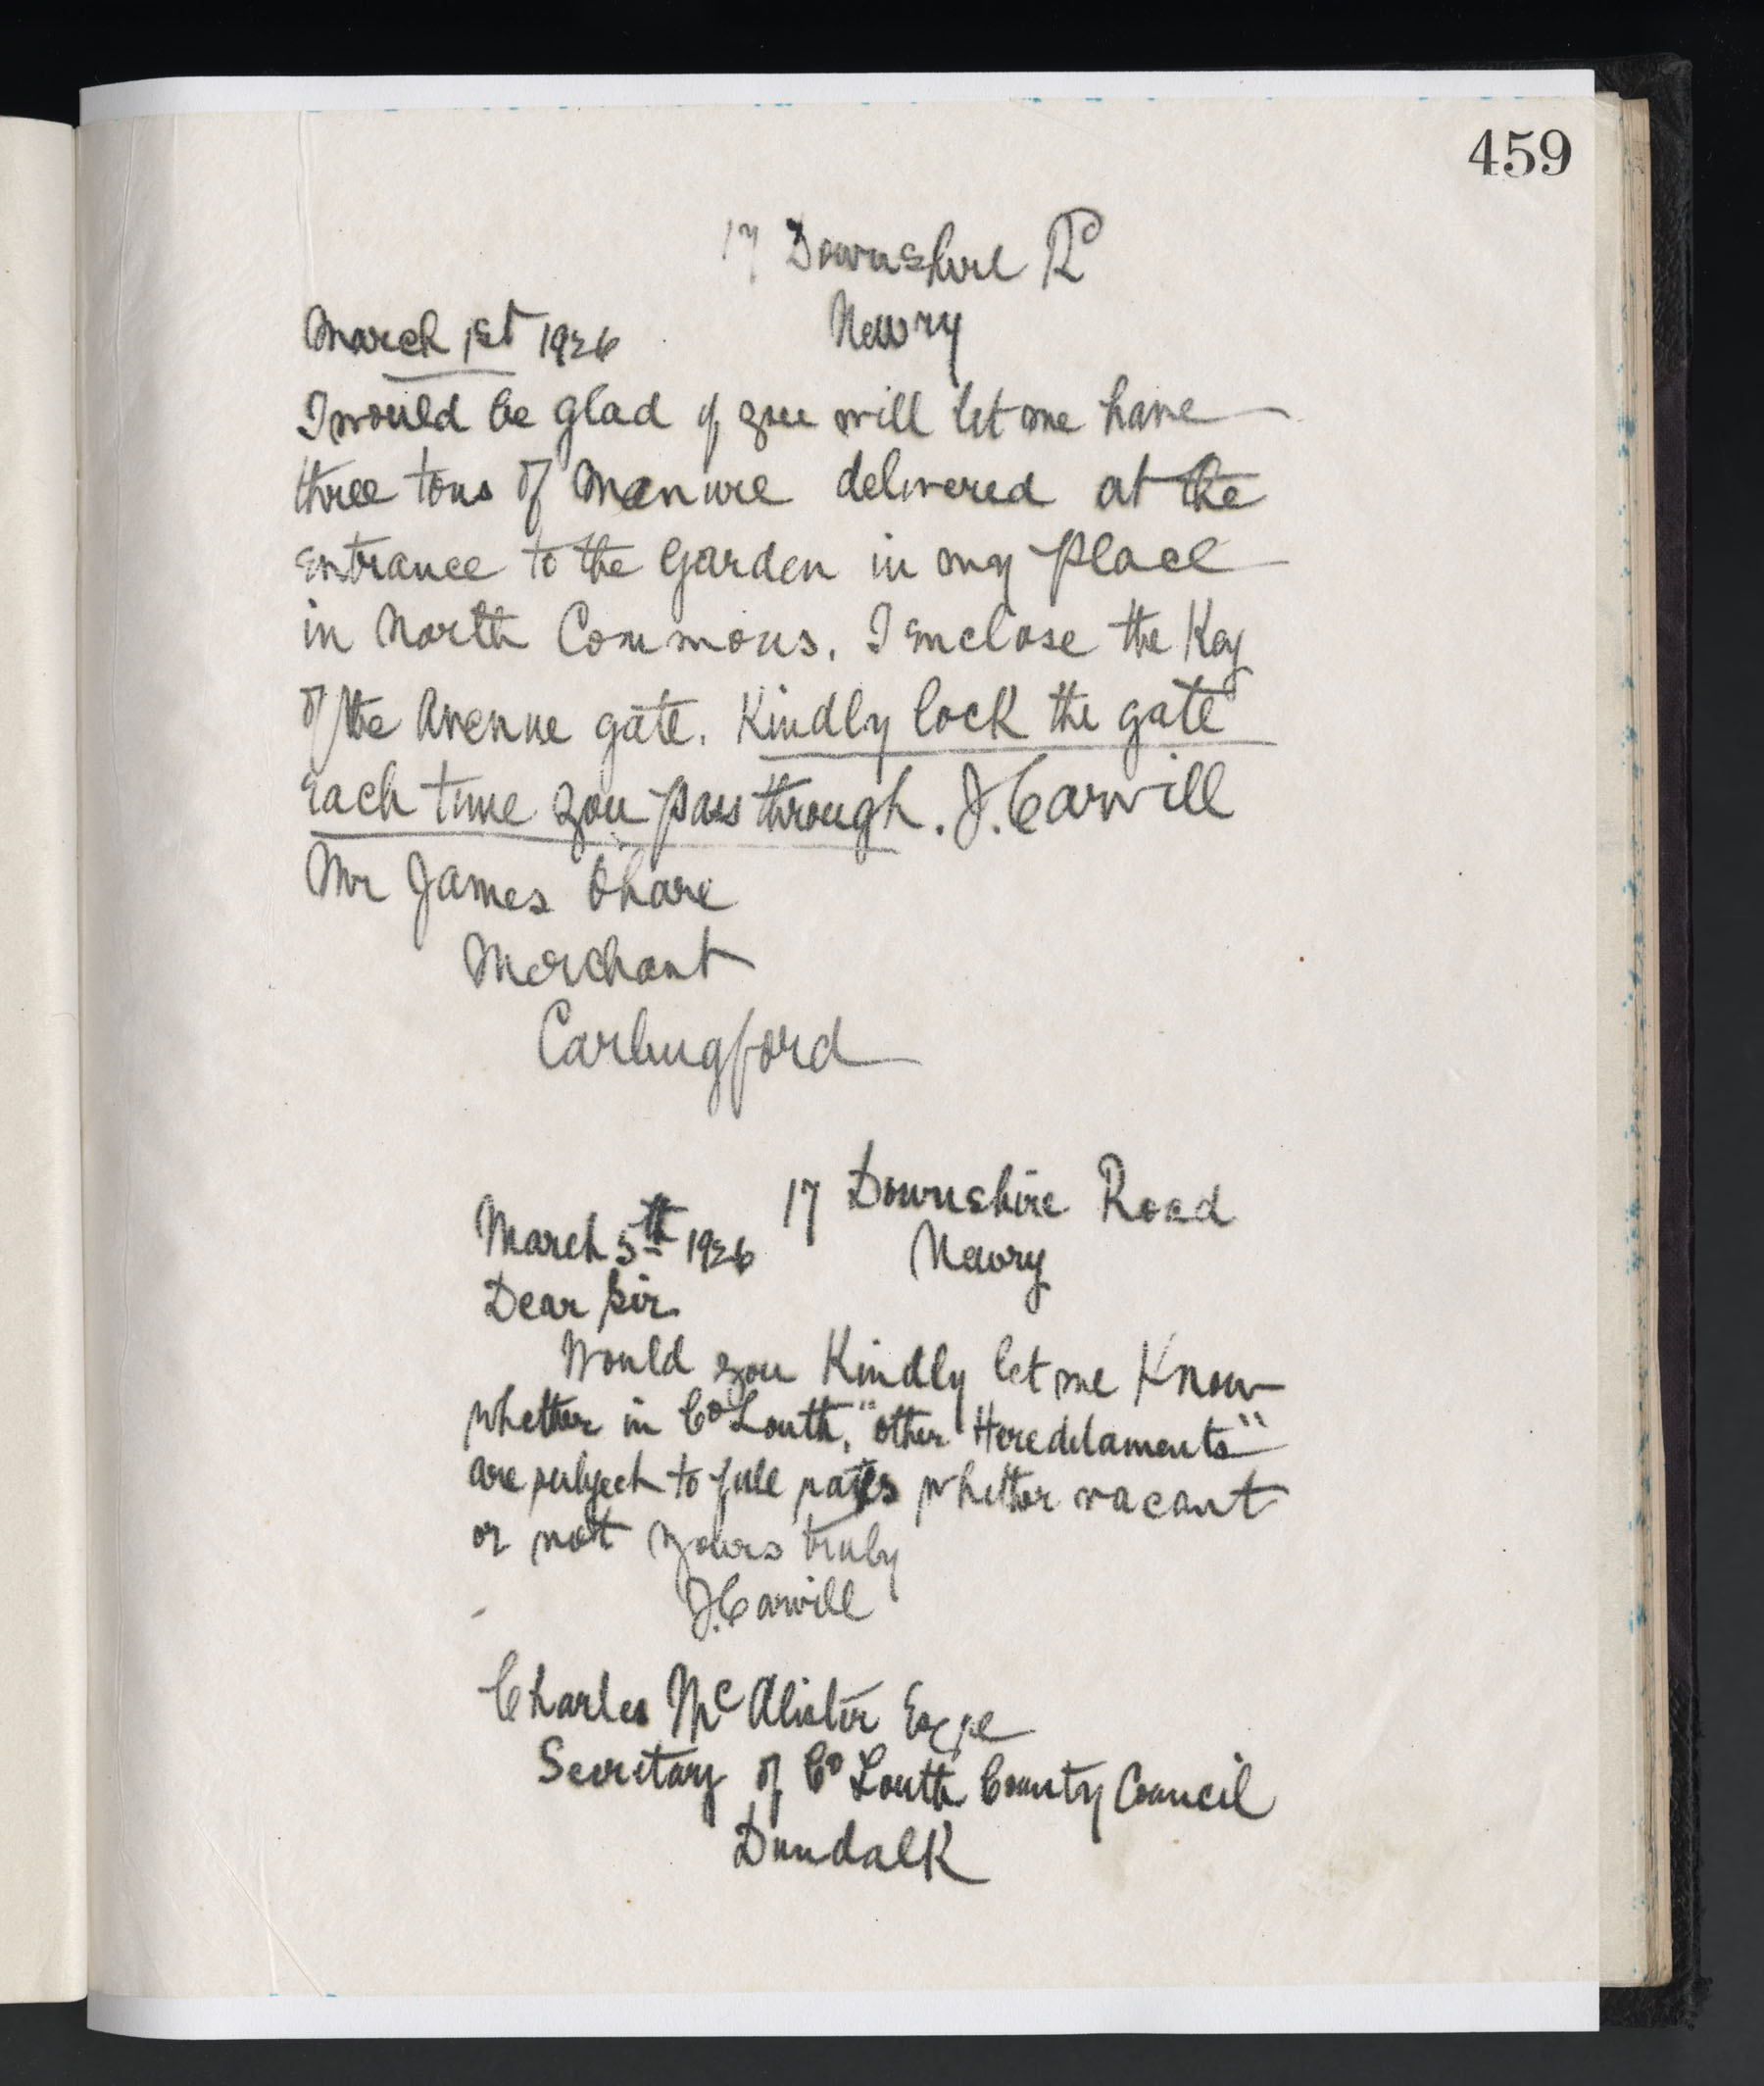 459
17 Downshire Rd
March 1st 1926 Newry
I would be glad if you will let me have
three tons of Manure delivered at the
entrance to the Garden in my place
in North Commons. I enclose the Key
of the Avenue gate. Kindly lock the gate
each time you pass through. J. Carvill
Mr James Ohare
Merchant
Carlingford
17 Downshire Road
March 5th 1926 Newry
Dear Sir
Would you Kindly let me Know
whether in Co Louth, "other Heredilaments"
are subject to full rates whether vacant
or not yours truly
J. Carvill
Charles McAlister Esqre
Secretary of Co Louth County Council
Dundalk